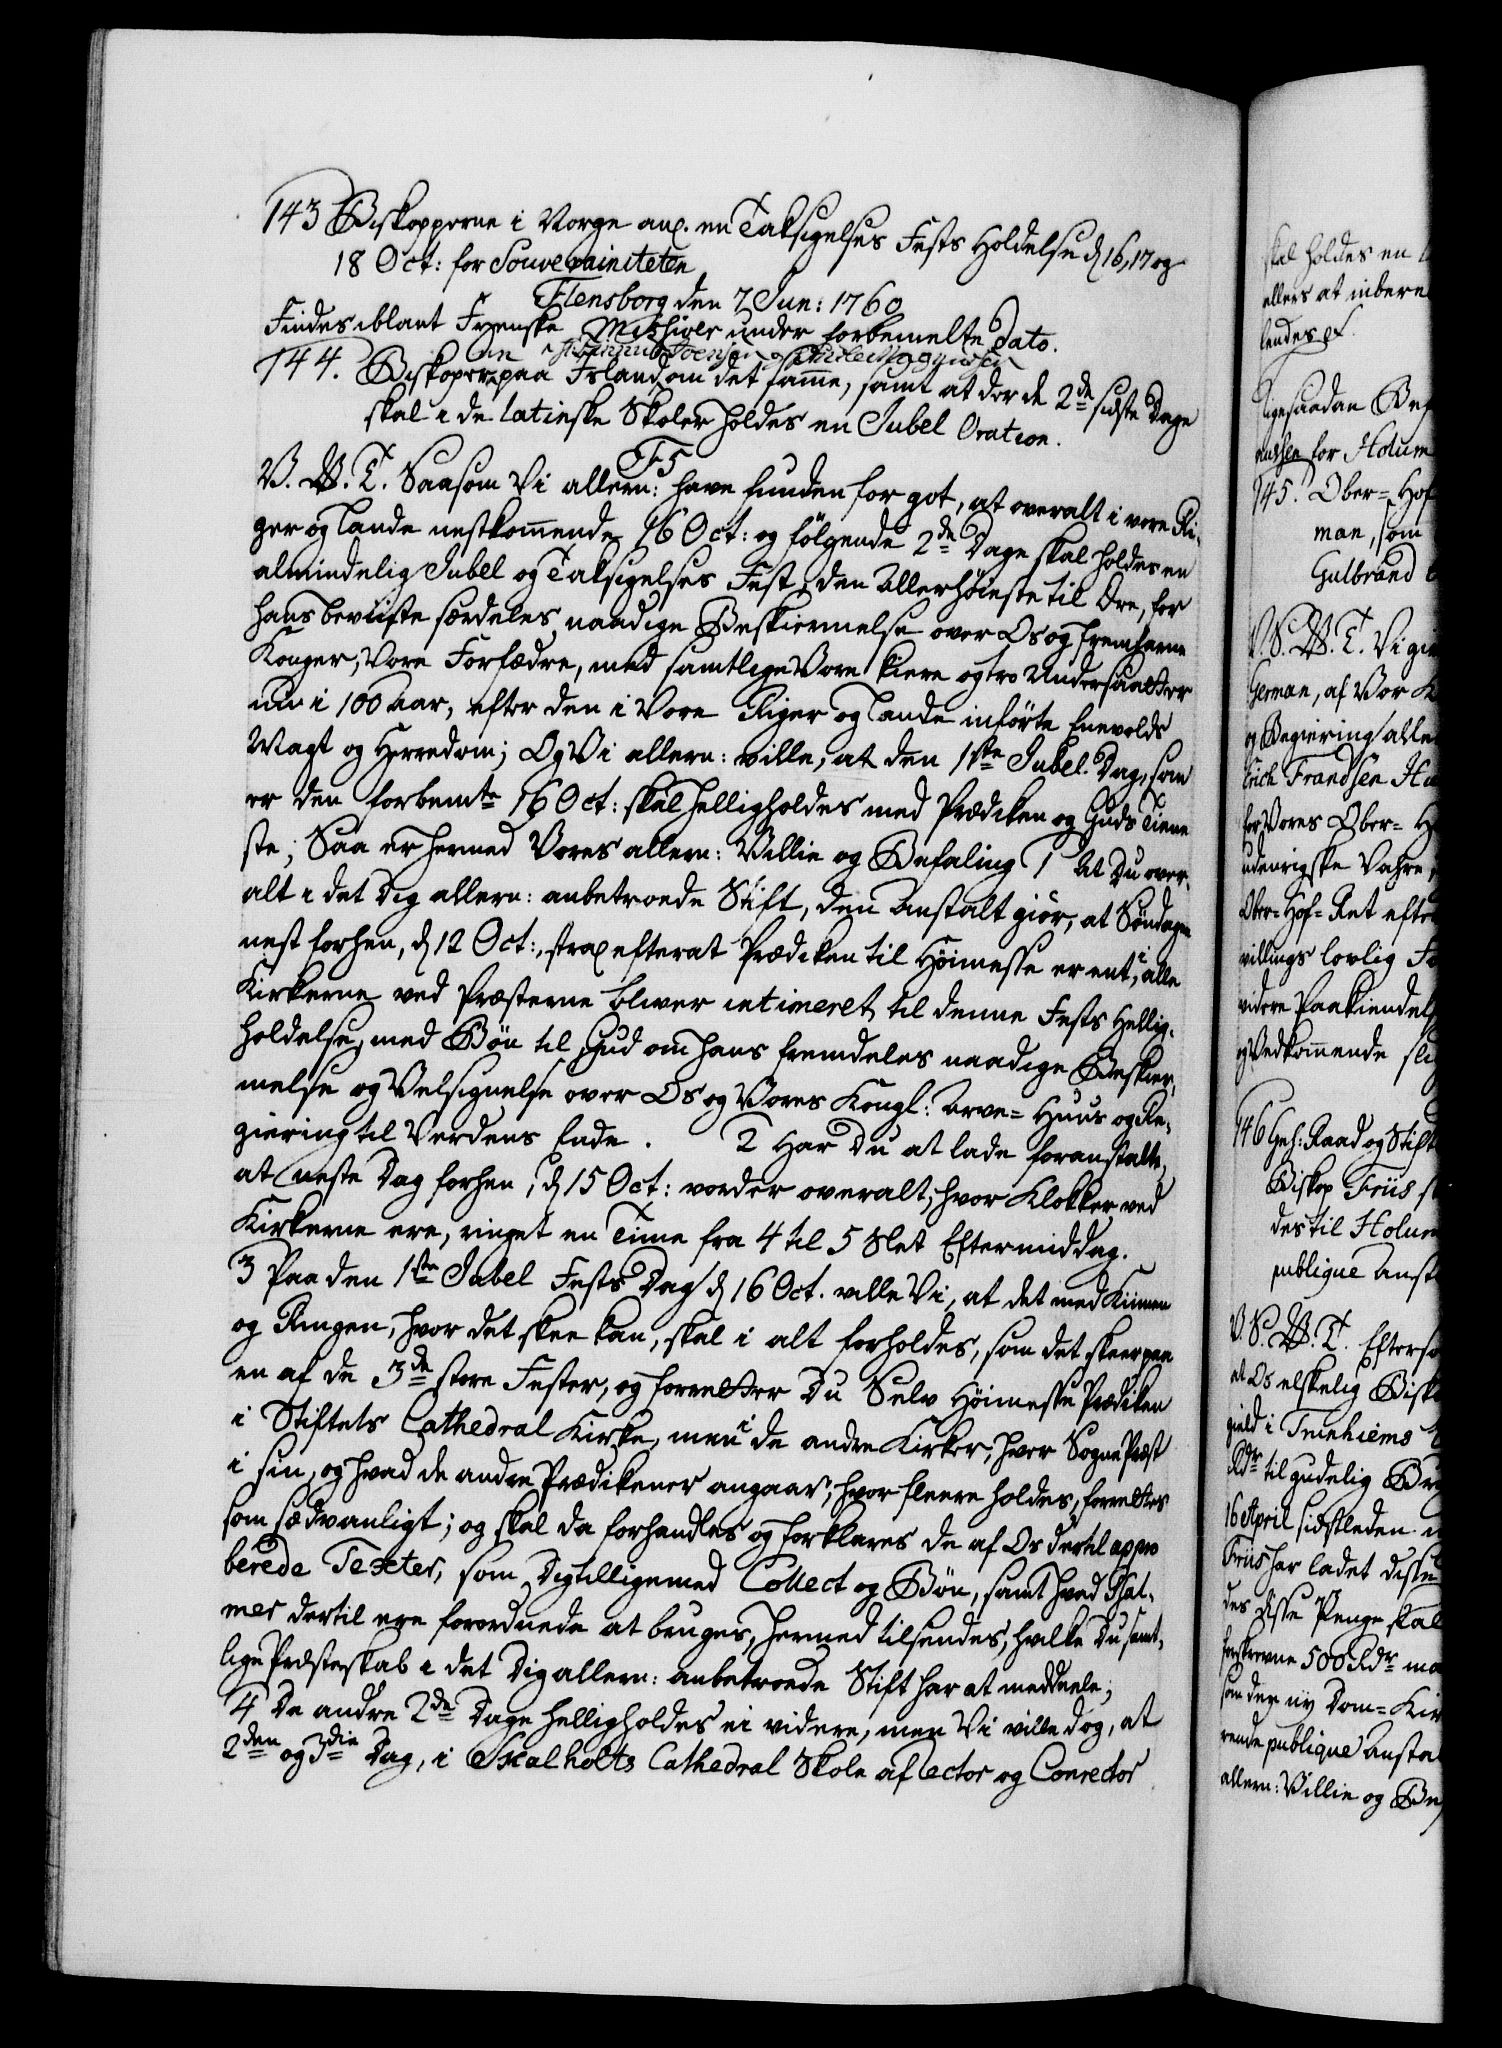 143 Biskopperne i Norge anl. en Taksigelses Fests Holdelse d 16, 17 og
18 Oct: for Souverainiteten
Flensborg den 7 Jun: 1760
Findes iblant Fyenske Missiver under forbemelte Dato.
144. Biskoperne paa Island om det samme, samt at der de 2de sidste Dage
skal i de latinske Skoler holdes en Jubel Oration.
F5
V. G. T. Saasom Vi allern: have funden for got, at overalt i vore Ri-
ger og Lande nestkommende 16 Oct: og følgende 2de Dage skal holdes en
almindelig Jubel og Taksigelses Fest, den Allerhøieste til Ære, for
hans beviiste særdeles naadige Beskiermelse over Os og fremfarne
Konger, Vore Forfædre, med samtlige Vore kiere og tro Undersaatter
nu i 100 Aar, efter den i Vore Riger og Lande inførte Enevolds
Magt og Herredom; Og Vi allern: ville, at den 1ste Jubel-Dag, som
er den forbemte 16 Oct: skal helligholdes med Prædiken og Guds Tiene-
ste; Saa er hermed Vores allern: Villie og Befaling 1 At Du over-
alt i det Dig allern: anbetroede Stift, den Anstalt giør, at Søndagen
nest forhen, d 12 Oct:, strax efterat Prædiken til Høimesse er ent, i alle
Kirkerne ved Præsterne bliver intimeret til denne Fests Hellig-
holdelse, med Bøn til Gud om hans fremdeles naadige Beskier-
melse og Velsignelse over Os og Vores Kongl: Arve-Huus og Re-
giering til Verdens Ende. 2 Har Du at lade foranstalte,
at neste Dag forhen, d 15 Oct: vorder overalt, hvor Klokker ved
Kirkerne ere, ringet en Time fra 4 til 5 Slet Eftermiddag.
3 Paa den 1ste Jubel Fests Dag d 16 Oct. ville Vi, at det med Kiimen
og Ringen, hvor det skee kan, skal i alt forholdes, som det skeer paa
en af de 3de store Fester, og forretter Du Selv Høimesse Prædiken
i Stiftets Cathedral Kirke, men i de andre Kirker, hver Sogne Præst
i sin, og hvad de andre Prædikener angaar, hvor fleere holdes, forrettes
som sædvanligt; og skal da forhandles og forklares de af Os dertil appro
berede Texter, som Dig tilligemed Collect og Bøn, samt hvad Psal-
mer dertil ere forordnede at bruges, hermed tilsendes, hvilke Du samt-
lige Præsteskab i det Dig allern: anbetroede Stift har at meddeele;
4 De andre 2de Dage helligholdes ei videre, men Vi ville dog, at
2den og 3die Dag, i Skalholts Cathedral Skole af Rector og Conrector
skal holdes en
ellers at inbere
lendes
ligesaadan Bef
for Holum
145. Ober-Hof
man, som
Gulbrand
V. S. G. T. Vi gi
German, af Vor
og Regiering alle
Erich Frandsen
for Vores Ober-
udenrigske Vahre
Ober-Hof-Ret efter
villings lovlig
videre Paakiendels
og Vedkommende
146 Geh: Raad og Stift
Biskop Friis
des til Holum
publique Anst
V. S. G. T. Efterso
at Os elskelig Bisko
gield i Trunhiems
Rdr til gudelig Bru
16 April sidstleden
Friis har ladet disse
des disse Penge skal
forskrevne 500 Rdr
som der ny Dom-Kir
rende publique Ansta
allern: Villie og Be